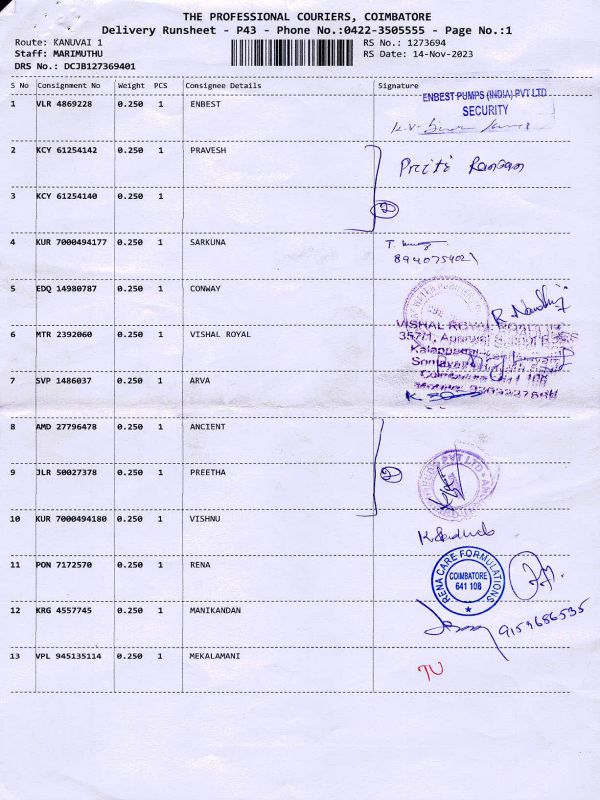 THE PROFESSIONAL COURIERS, COIMBATORE
Delivery Runsheet - P43 - Phone No.:0422-3505555 - Page No.:1
Route: KANUVAI 1
RS No.: 1273694
Staff: MARIMUTHU
RS Date: 14-Nov-2023
DRS No.: DCJB127369401
S No Consignment No Weight PCS Consignee Details Signature
1 VLR 4869228 0.250 1 ENBEST
ENBEST PUMPS (INDIA) PVT LTD
SECURITY
2 KCY 61254142 0.250 1 PRAVESH
3 KCY 61254140 0.250 1
2
4 KUR 7000494177 0.250 1 SARKUNA
8940754021
5 EDQ 14980787 0.250 1 CONWAY
6 MTR 2392060 0.250 1 VISHAL ROYAL
VISHAL ROYAL
7 SVP 1486037 0.250 1 ARVA
8 AMD 27796478 0.250 1 ANCIENT
9 JLR 50027378 0.250 1 PREETHA
2
10 KUR 7000494180 0.250 1 VISHNU
11 PON 7172570 0.250 1 RENA
RENA CARE FORMULATIONS
COIMBATORE
641 108
12 KRG 4557745 0.250 1 MANIKANDAN
9159686535
13 VPL 945135114 0.250 1 MEKALAMANI